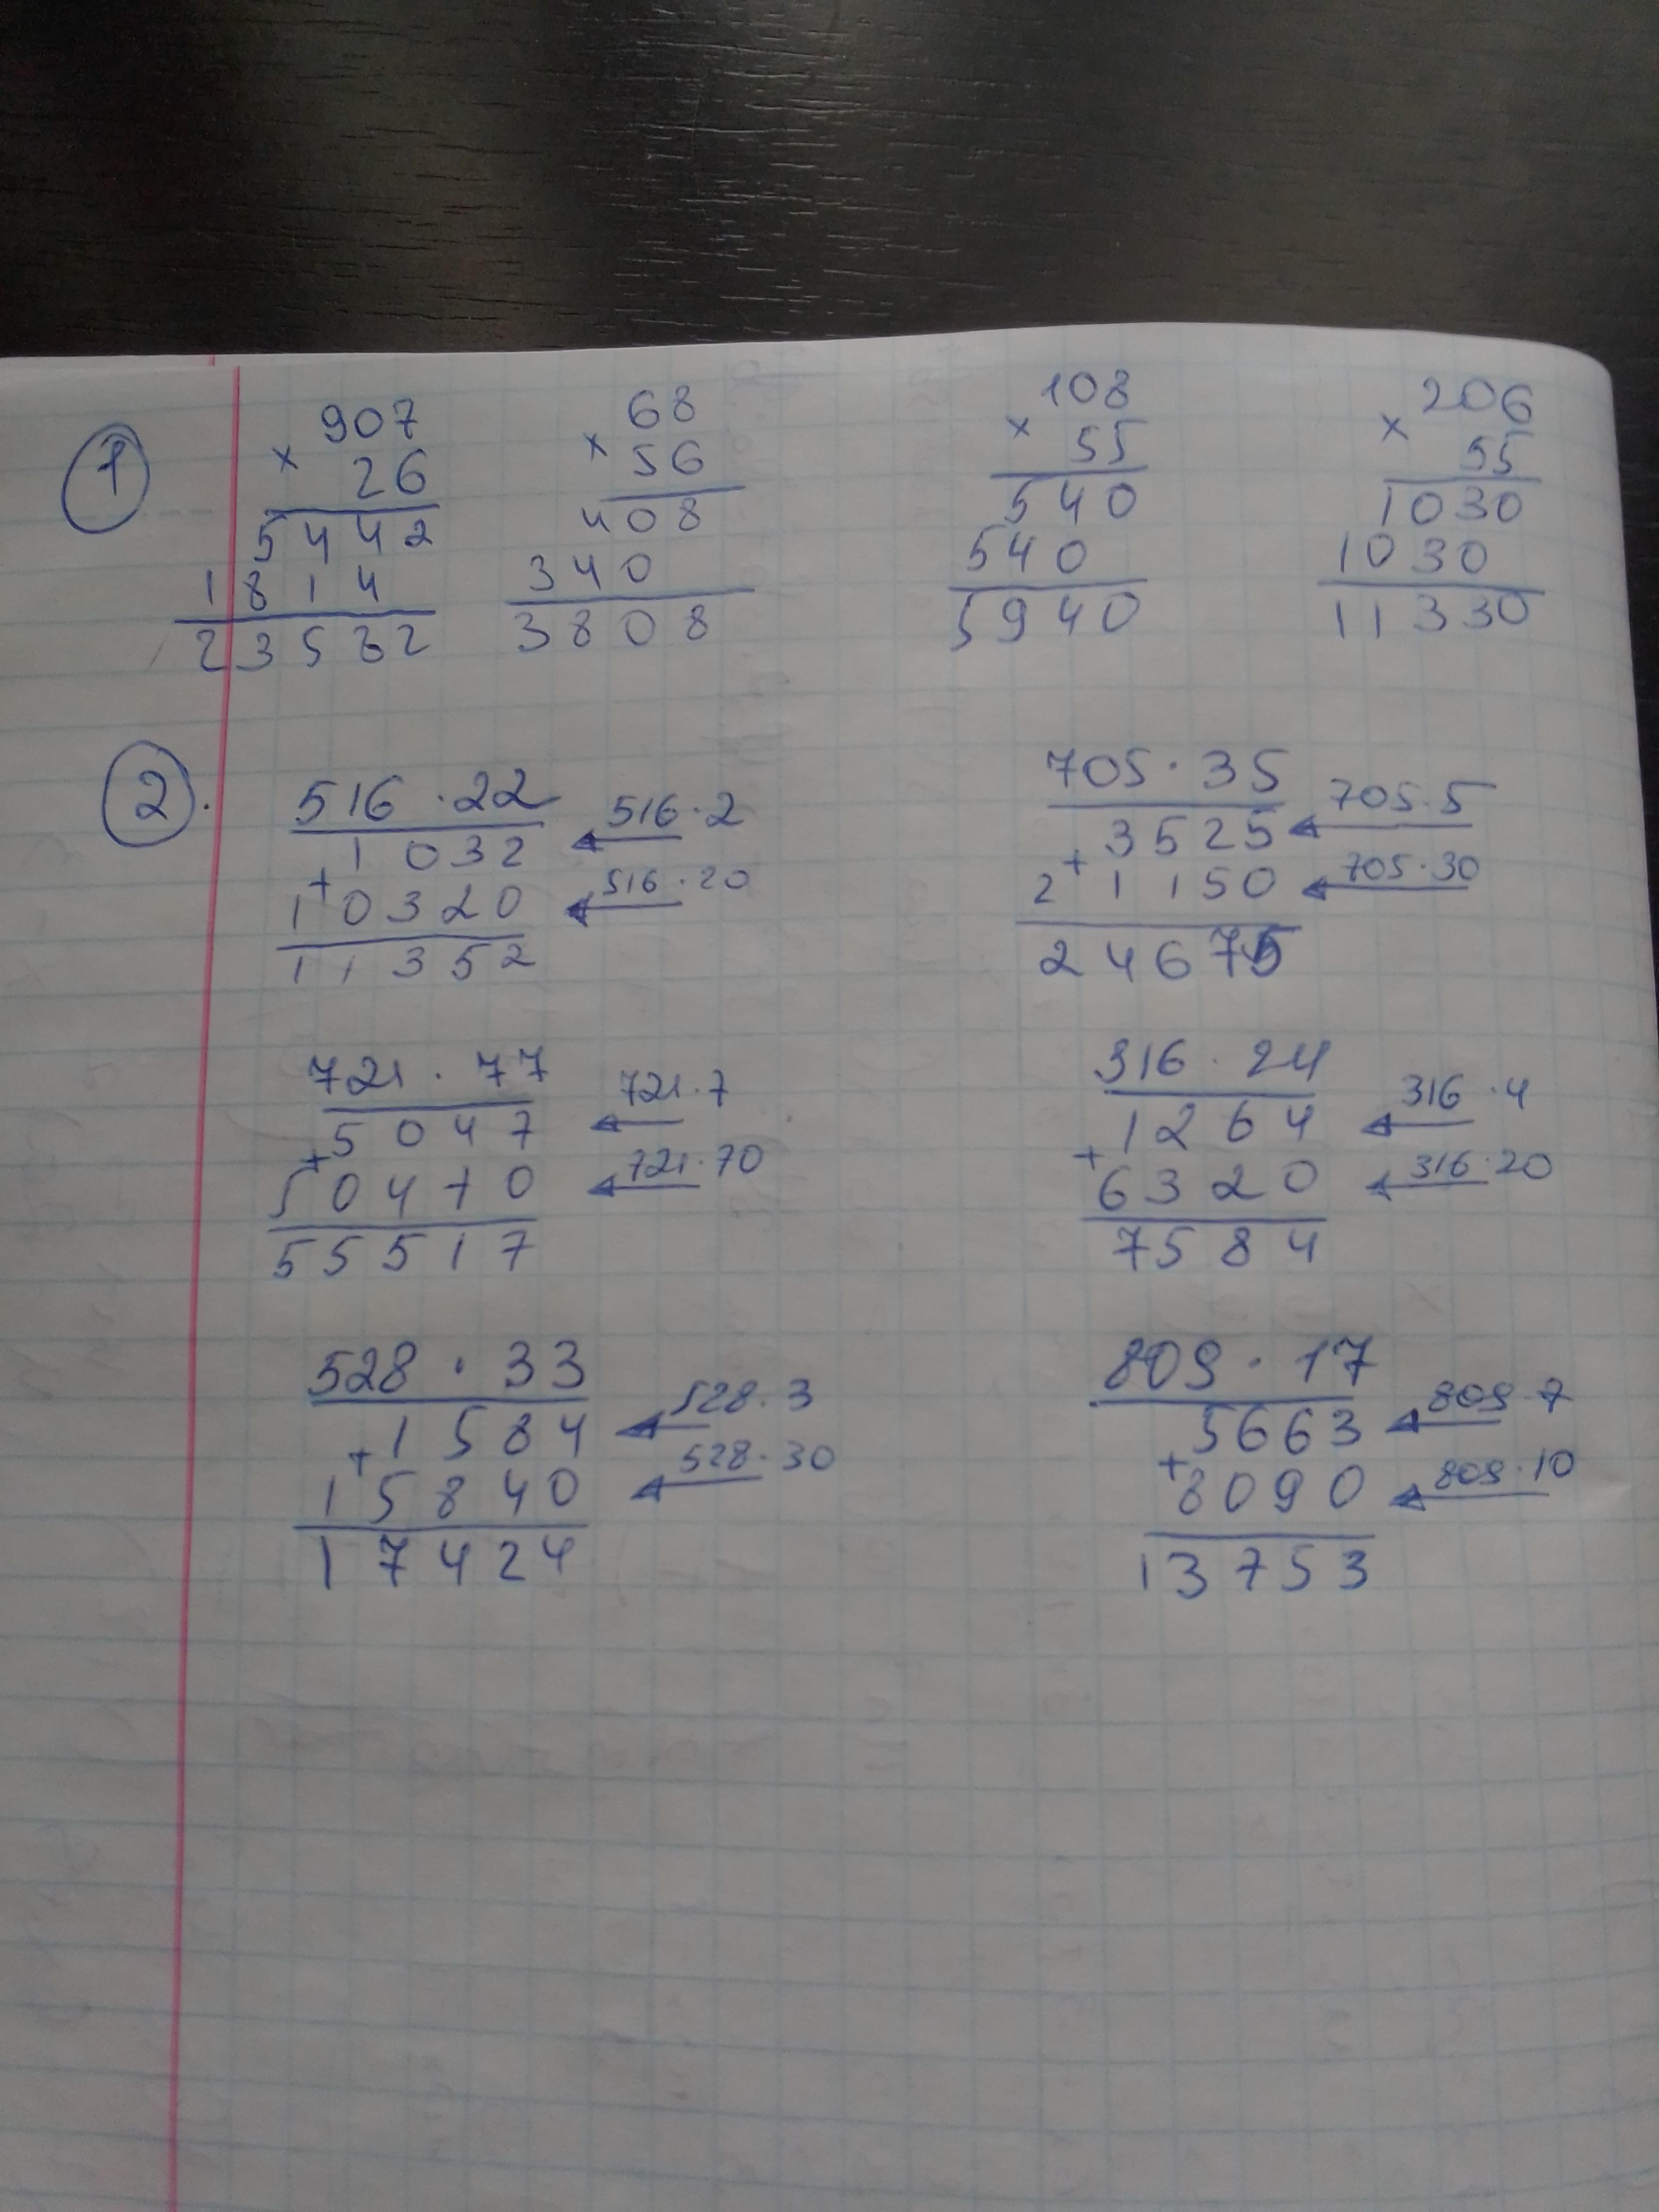 1
907
× 26
5442
1814
23532
68
× 56
408
340
3808
108
× 55
540
540
5940
206
× 55
1030
1030
11330
2.
516 · 22
1032 ← 516 · 2
+
10320 ← 516 · 20
11352
705 · 35
3525 ← 705 · 5
+
21150 ← 705 · 30
24675
721 · 77
5047 ← 721 · 7
+
50470 ← 721 · 70
55517
316 · 24
1264 ← 316 · 4
+
6320 ← 316 · 20
7584
528 · 33
1584 ← 528 · 3
+
15840 ← 528 · 30
17424
809 · 17
5663 ← 809 · 7
+
8090 ← 809 · 10
13753